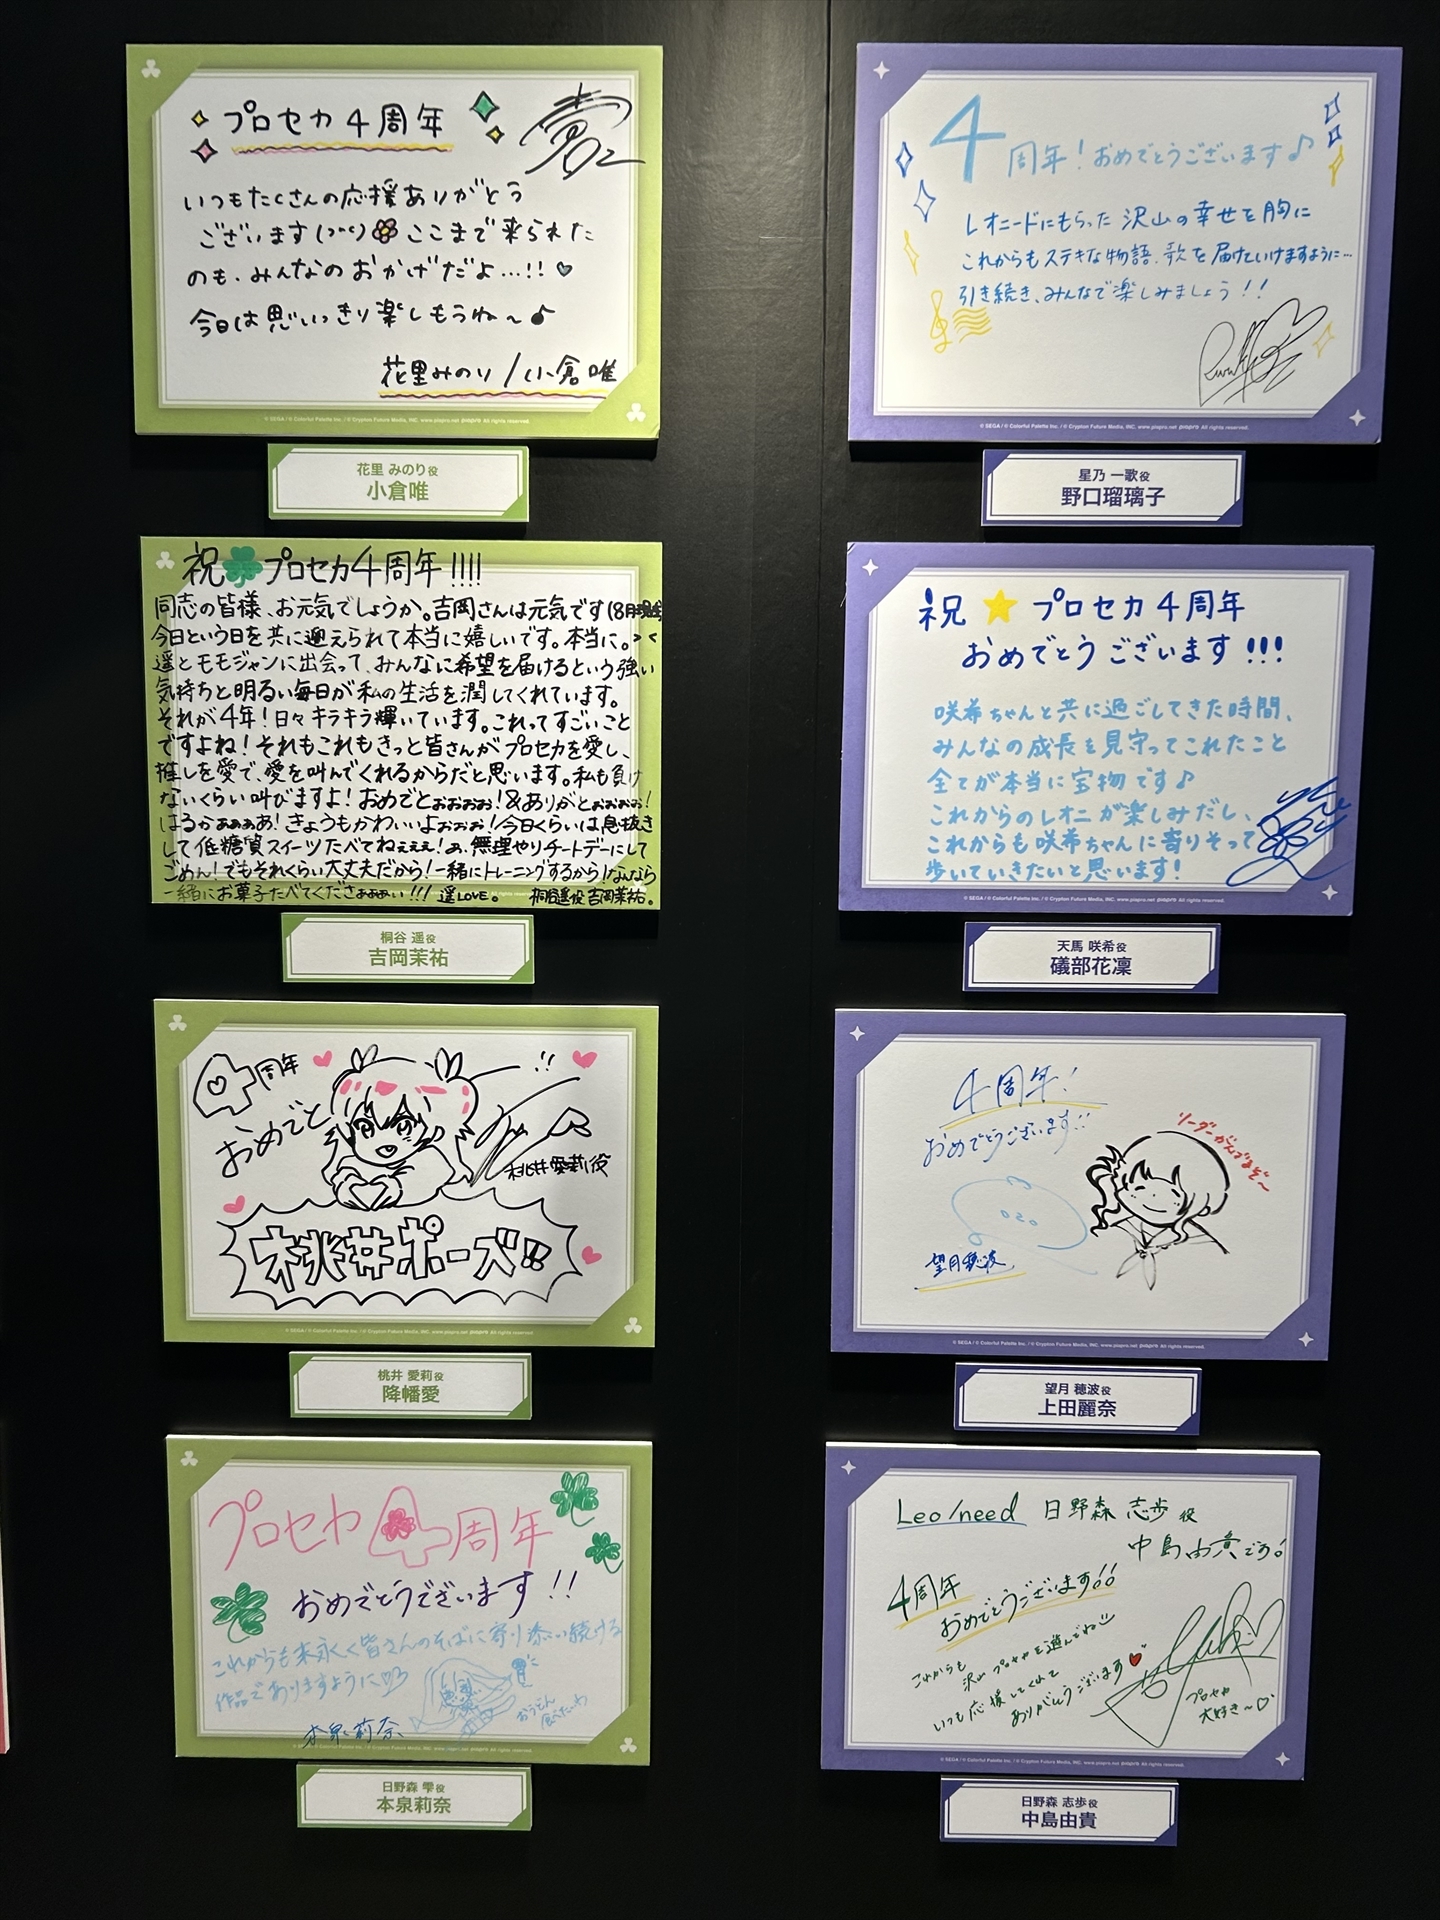 プロセカ4周年
いつもたくさんの応援ありがとう
ございます
ここまで来られた
のも、みんなのおかげだよ…!!♡
今日は思いっきり楽しもうね〜♪
花里みのり/小倉唯
© SEGA / © Colorful Palette Inc. / © Crypton Future Media, INC. www.piapro.net piapro All rights reserved.
花里 みのり役
小倉唯
祝プロセカ4周年!!!!
同志の皆様、お元気でしょうか。吉岡さんは元気です(8月現在)
今日という日を共に迎えられて本当に嬉しいです。本当に。><
遥とモモジャンに出会って、みんなに希望を届けるという強い
気持ちと明るい毎日が私の生活を潤してくれています。
それが4年!日々キラキラ輝いています。これってすごいこと
ですよね!それもこれもきっと皆さんがプロセカを愛し、
推しを愛で、愛を叫んでくれるからだと思います。私も負け
ないくらい叫びますよ!おめでとぉぉぉぉ!&ありがとぉぉぉぉ!
はるかぁぁぁあ!きょうもかわいいよぉぉぉ!今日くらいは息抜き
して低糖質スイーツたべてねぇぇぇ!あ、無理やりチートデーにして
ごめん!でもそれくらい大丈夫だから!一緒にトレーニングするから!なんなら
一緒にお菓子たべてくださぁぁぁい!!! 遥LOVE。 桐谷遥役 吉岡茉祐。
桐谷 遥役
吉岡茉祐
4周年
おめでと
!!
桃井愛莉役
桃井ポーズ!!
© SEGA / © Colorful Palette Inc. / © Crypton Future Media, INC. www.piapro.net piapro All rights reserved.
桃井 愛莉役
降幡愛
プロセカ4周年
おめでとうございます!!
これからも末永く皆さんのそばに寄り添い続ける
作品でありますように
おうどん
食べたいわ
本泉莉奈
日野森 雫役
本泉莉奈
4周年!おめでとうございます♪
レオニードにもらった沢山の幸せを胸に
これからもステキな物語、歌を届けていけますように…
引き続き、みんなで楽しみましょう!!
© SEGA / © Colorful Palette Inc. / © Crypton Future Media, INC. www.piapro.net piapro All rights reserved.
星乃 一歌役
野口瑠璃子
祝プロセカ4周年
おめでとうございます!!!
咲希ちゃんと共に過ごしてきた時間、
みんなの成長を見守ってこれたこと
全てが本当に宝物です♪
これからのレオニが楽しみだし、
これからも咲希ちゃんに寄りそって
歩いていきたいと思います!
© SEGA / © Colorful Palette Inc. / © Crypton Future Media, INC. www.piapro.net piapro All rights reserved.
天馬 咲希役
礒部花凜
4周年!
おめでとうございます!!
望月穂波
© SEGA / © Colorful Palette Inc. / © Crypton Future Media, INC. www.piapro.net piapro All rights reserved.
望月 穂波役
上田麗奈
Leo/need 日野森 志歩 役
中島由貴です!
4周年
おめでとうございます!!
これからも
沢山プロセカを遊んでね
いつも応援してくれて
ありがとうございます
プロセカ
大好き〜♡
© SEGA / © Colorful Palette Inc. / © Crypton Future Media, INC. www.piapro.net piapro All rights reserved.
日野森 志歩役
中島由貴